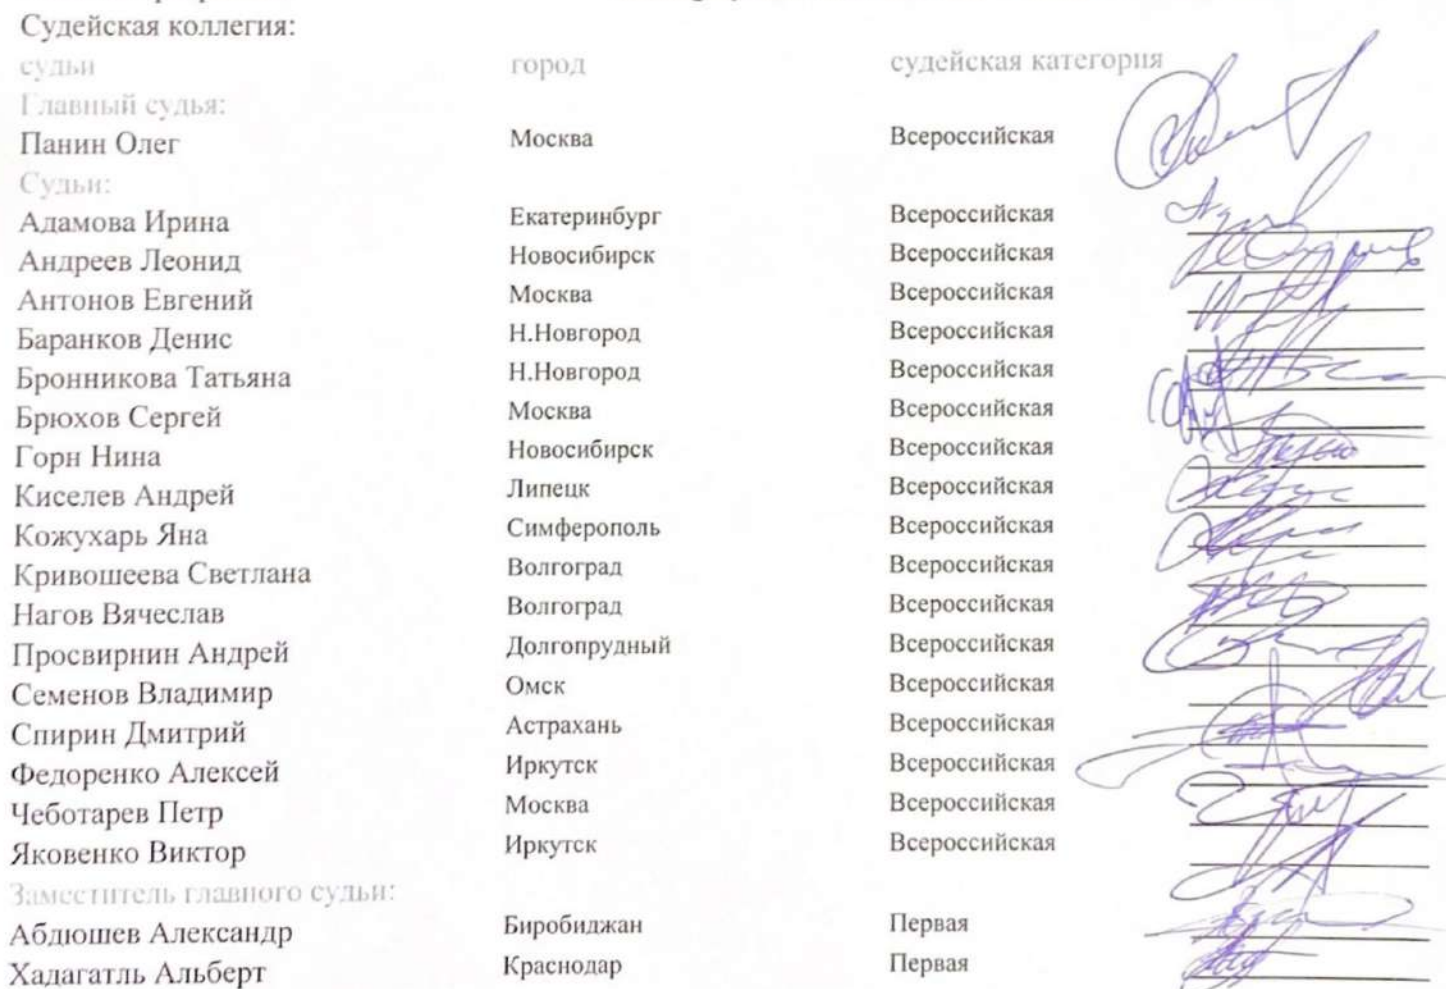 Судейская коллегия:
судьи город судейская категория
Главный судья:
Панин Олег Москва Всероссийская
Судьи:
Адамова Ирина Екатеринбург Всероссийская
Андреев Леонид Новосибирск Всероссийская
Антонов Евгений Москва Всероссийская
Баранков Денис Н.Новгород Всероссийская
Бронникова Татьяна Н.Новгород Всероссийская
Брюхов Сергей Москва Всероссийская
Горн Нина Новосибирск Всероссийская
Киселев Андрей Липецк Всероссийская
Кожухарь Яна Симферополь Всероссийская
Кривошеева Светлана Волгоград Всероссийская
Нагов Вячеслав Волгоград Всероссийская
Просвирнин Андрей Долгопрудный Всероссийская
Семенов Владимир Омск Всероссийская
Спирин Дмитрий Астрахань Всероссийская
Федоренко Алексей Иркутск Всероссийская
Чеботарев Петр Москва Всероссийская
Яковенко Виктор Иркутск Всероссийская
Заместитель главного судьи:
Абдюшев Александр Биробиджан Первая
Хадагатль Альберт Краснодар Первая